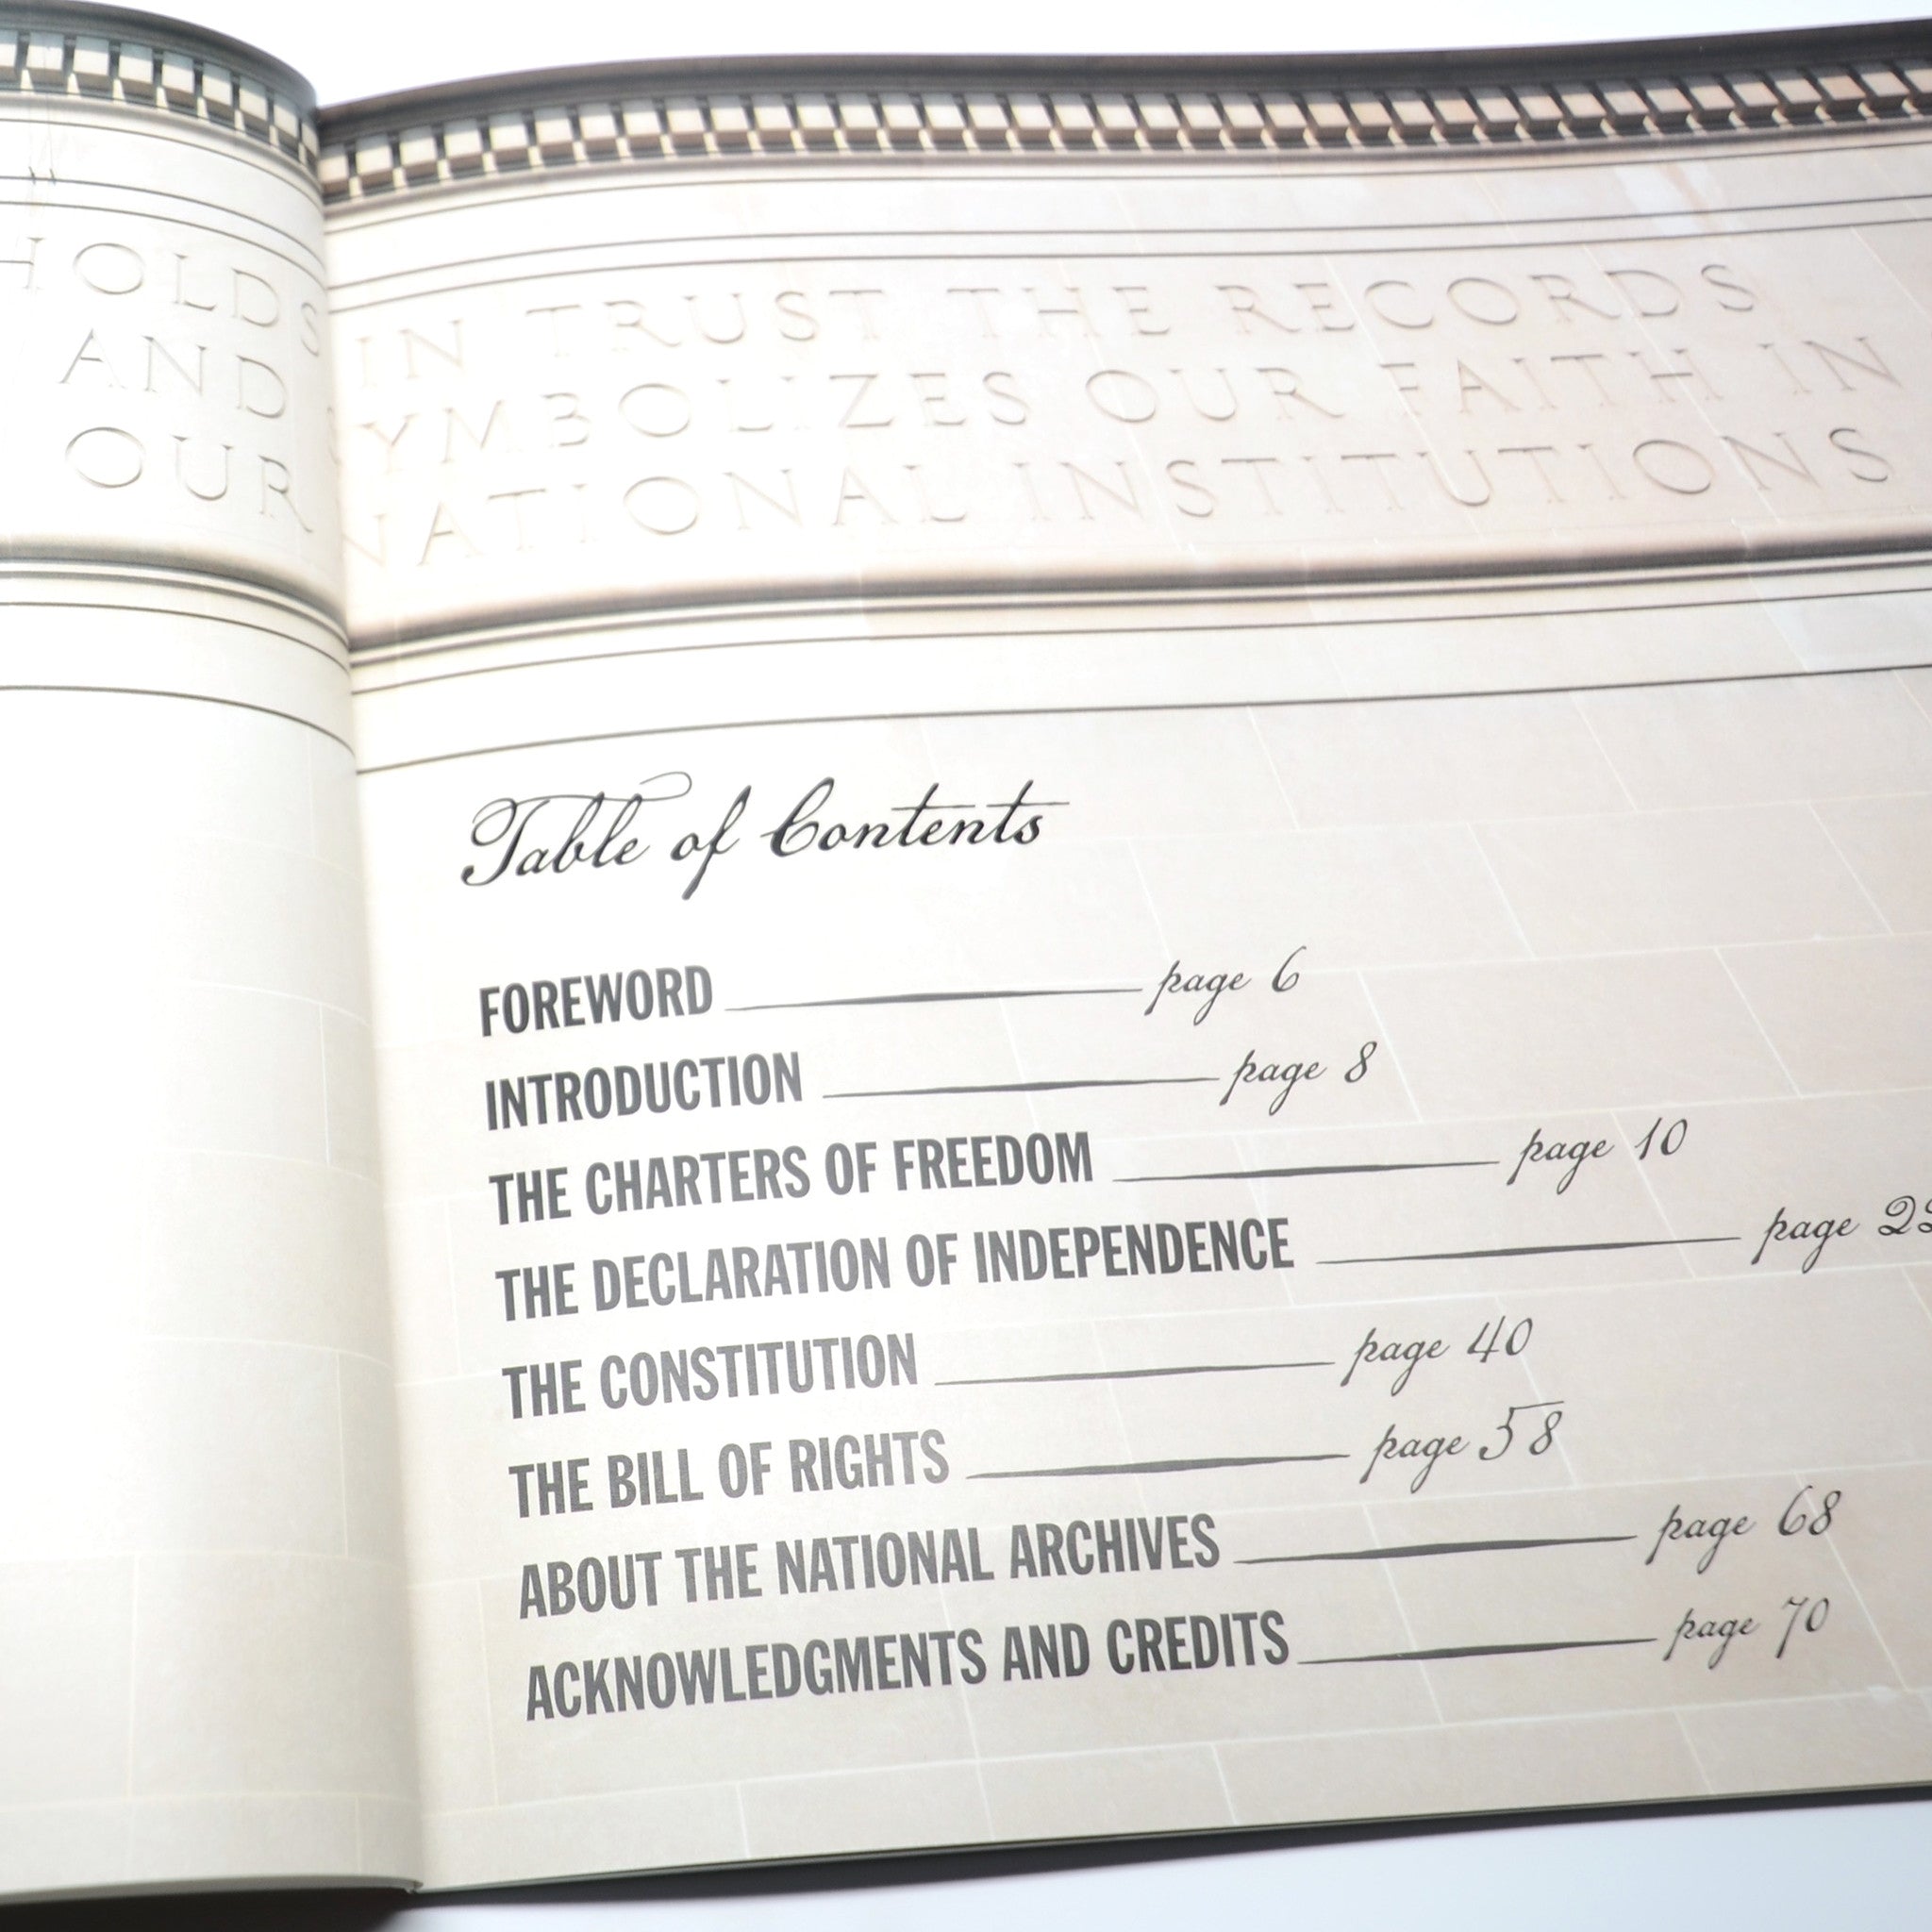 HOLDS IN TRUST THE RECORDS
AND SYMBOLIZES OUR FAITH IN
OUR NATIONAL INSTITUTIONS
Table of Contents
FOREWORD page 6
INTRODUCTION page 8
THE CHARTERS OF FREEDOM page 10
THE DECLARATION OF INDEPENDENCE page
THE CONSTITUTION page 40
THE BILL OF RIGHTS page 58
ABOUT THE NATIONAL ARCHIVES page 68
ACKNOWLEDGMENTS AND CREDITS page 70